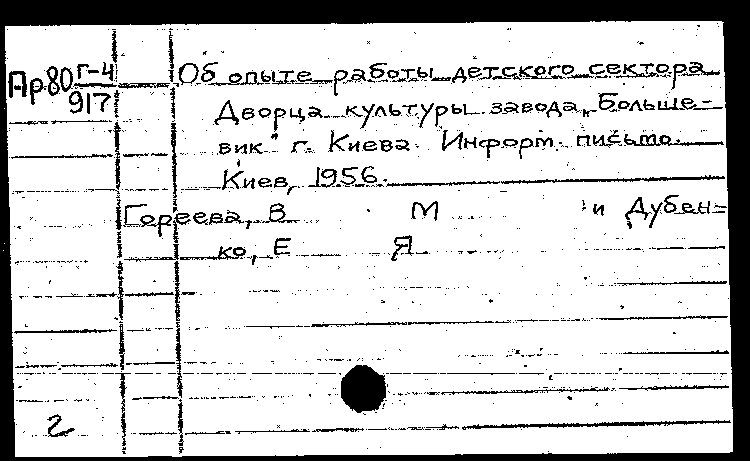 Пр80 Г-4/917 Об опыте работы детского сектора
Дворца культуры завода „Больше-
вик" г. Киева. Информ. письмо.
Киев, 1956.
Гореева, В М и Дубен-
ко, Е Я
2